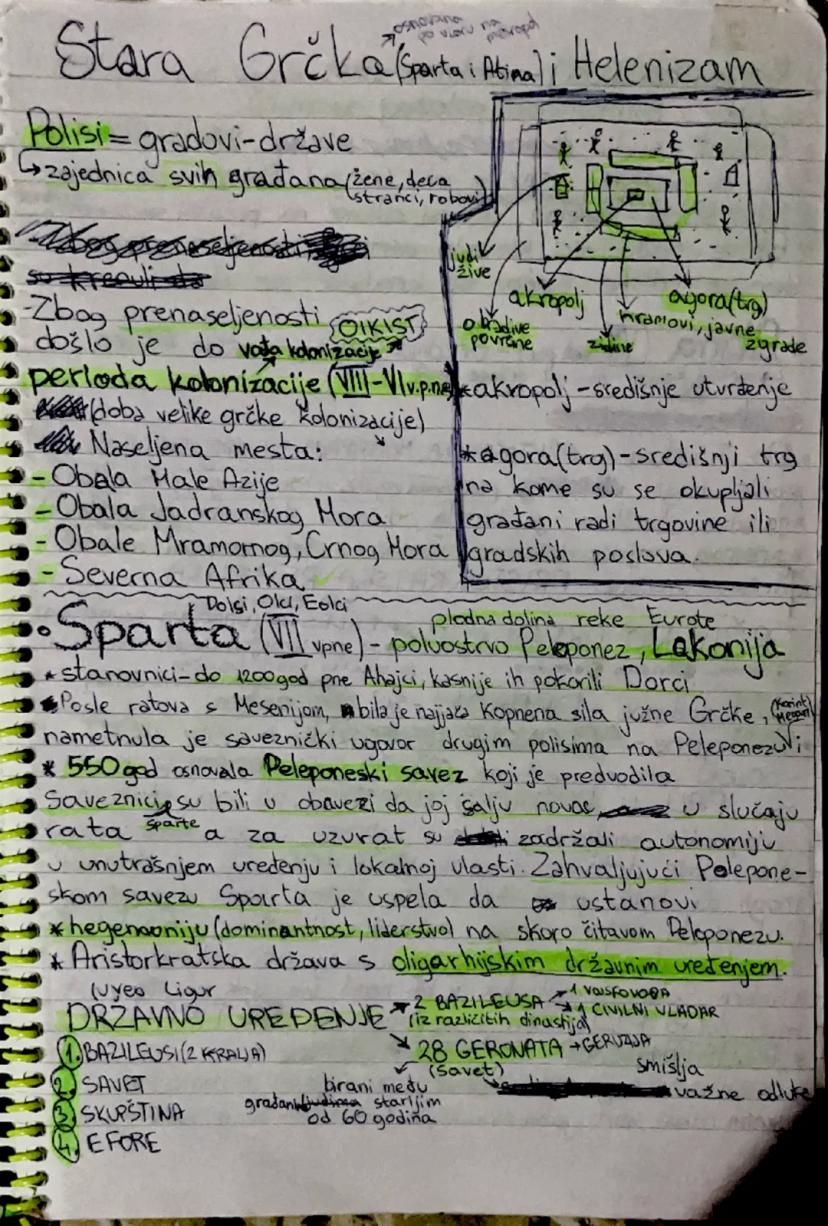 osnovana
Stara Grčka (Sparta i Atina) i Helenizam
Polisi = gradovi-države
↳ zajednica svih građana (žene, deca
stranci, robovi)
-Zbog prenaseljenosti
OIKIST
došlo je do vođa kolonizacije
perioda kolonizacije (VIII-VI v.p.n.e)
(doba velike grčke kolonizacije)
Naseljena mesta:
- Obala Male Azije
- Obala Jadranskog Mora
- Obale Mramornog, Crnog Mora
- Severna Afrika
ljudi
žive
obradive
površine
akropolj
zidine
hramovi, javne
zgrade
agora (trg)
*akropolj - središnje utvrđenje
*agora (trg) - središnji trg
na kome su se okupljali
građani radi trgovine ili
gradskih poslova.
plodna doline reke Eurote
• Sparta (VII vpne) - poluostrvo Peleponez, Lakonija
* stanovnici - do 1200 god pne Ahajci, kasnije ih pokorili Dorci
*Posle ratova s Mesenijom, bila je najjača kopnena sila južne Grčke,
nametnula je saveznički ugovor drugim polisima na Peleponezu
* 550 god osnovala Peleponeski savez koji je predvodila
Saveznici su bili u obavezi da joj šalju novac u slučaju
rata Sparte a za uzvrat su zadržali autonomiju
u unutrašnjem uređenju i lokalnoj vlasti. Zahvaljujući Pelepone-
skom savezu Sparta je uspela da ustanovi
* hegemoniju (dominantnost, liderstvo) na skoro čitavom Peleponezu.
* Aristorkratska država s oligarhijskim državnim uređenjem.
DRŽAVNO UREĐENJE → 2 BAZILEUSA → 1 VOJSKOVOĐA
→ 1 CIVILNI VLADAR
(iz različitih dinastija)
28 GERONATA → GERUZIJA
(savet)
birani među
građanima starijim
od 60 godina
smišlja
važne odluke
1. BAZILEUSI (2 KRALJA)
2. SAVET
3. SKUPŠTINA
4. EFORE